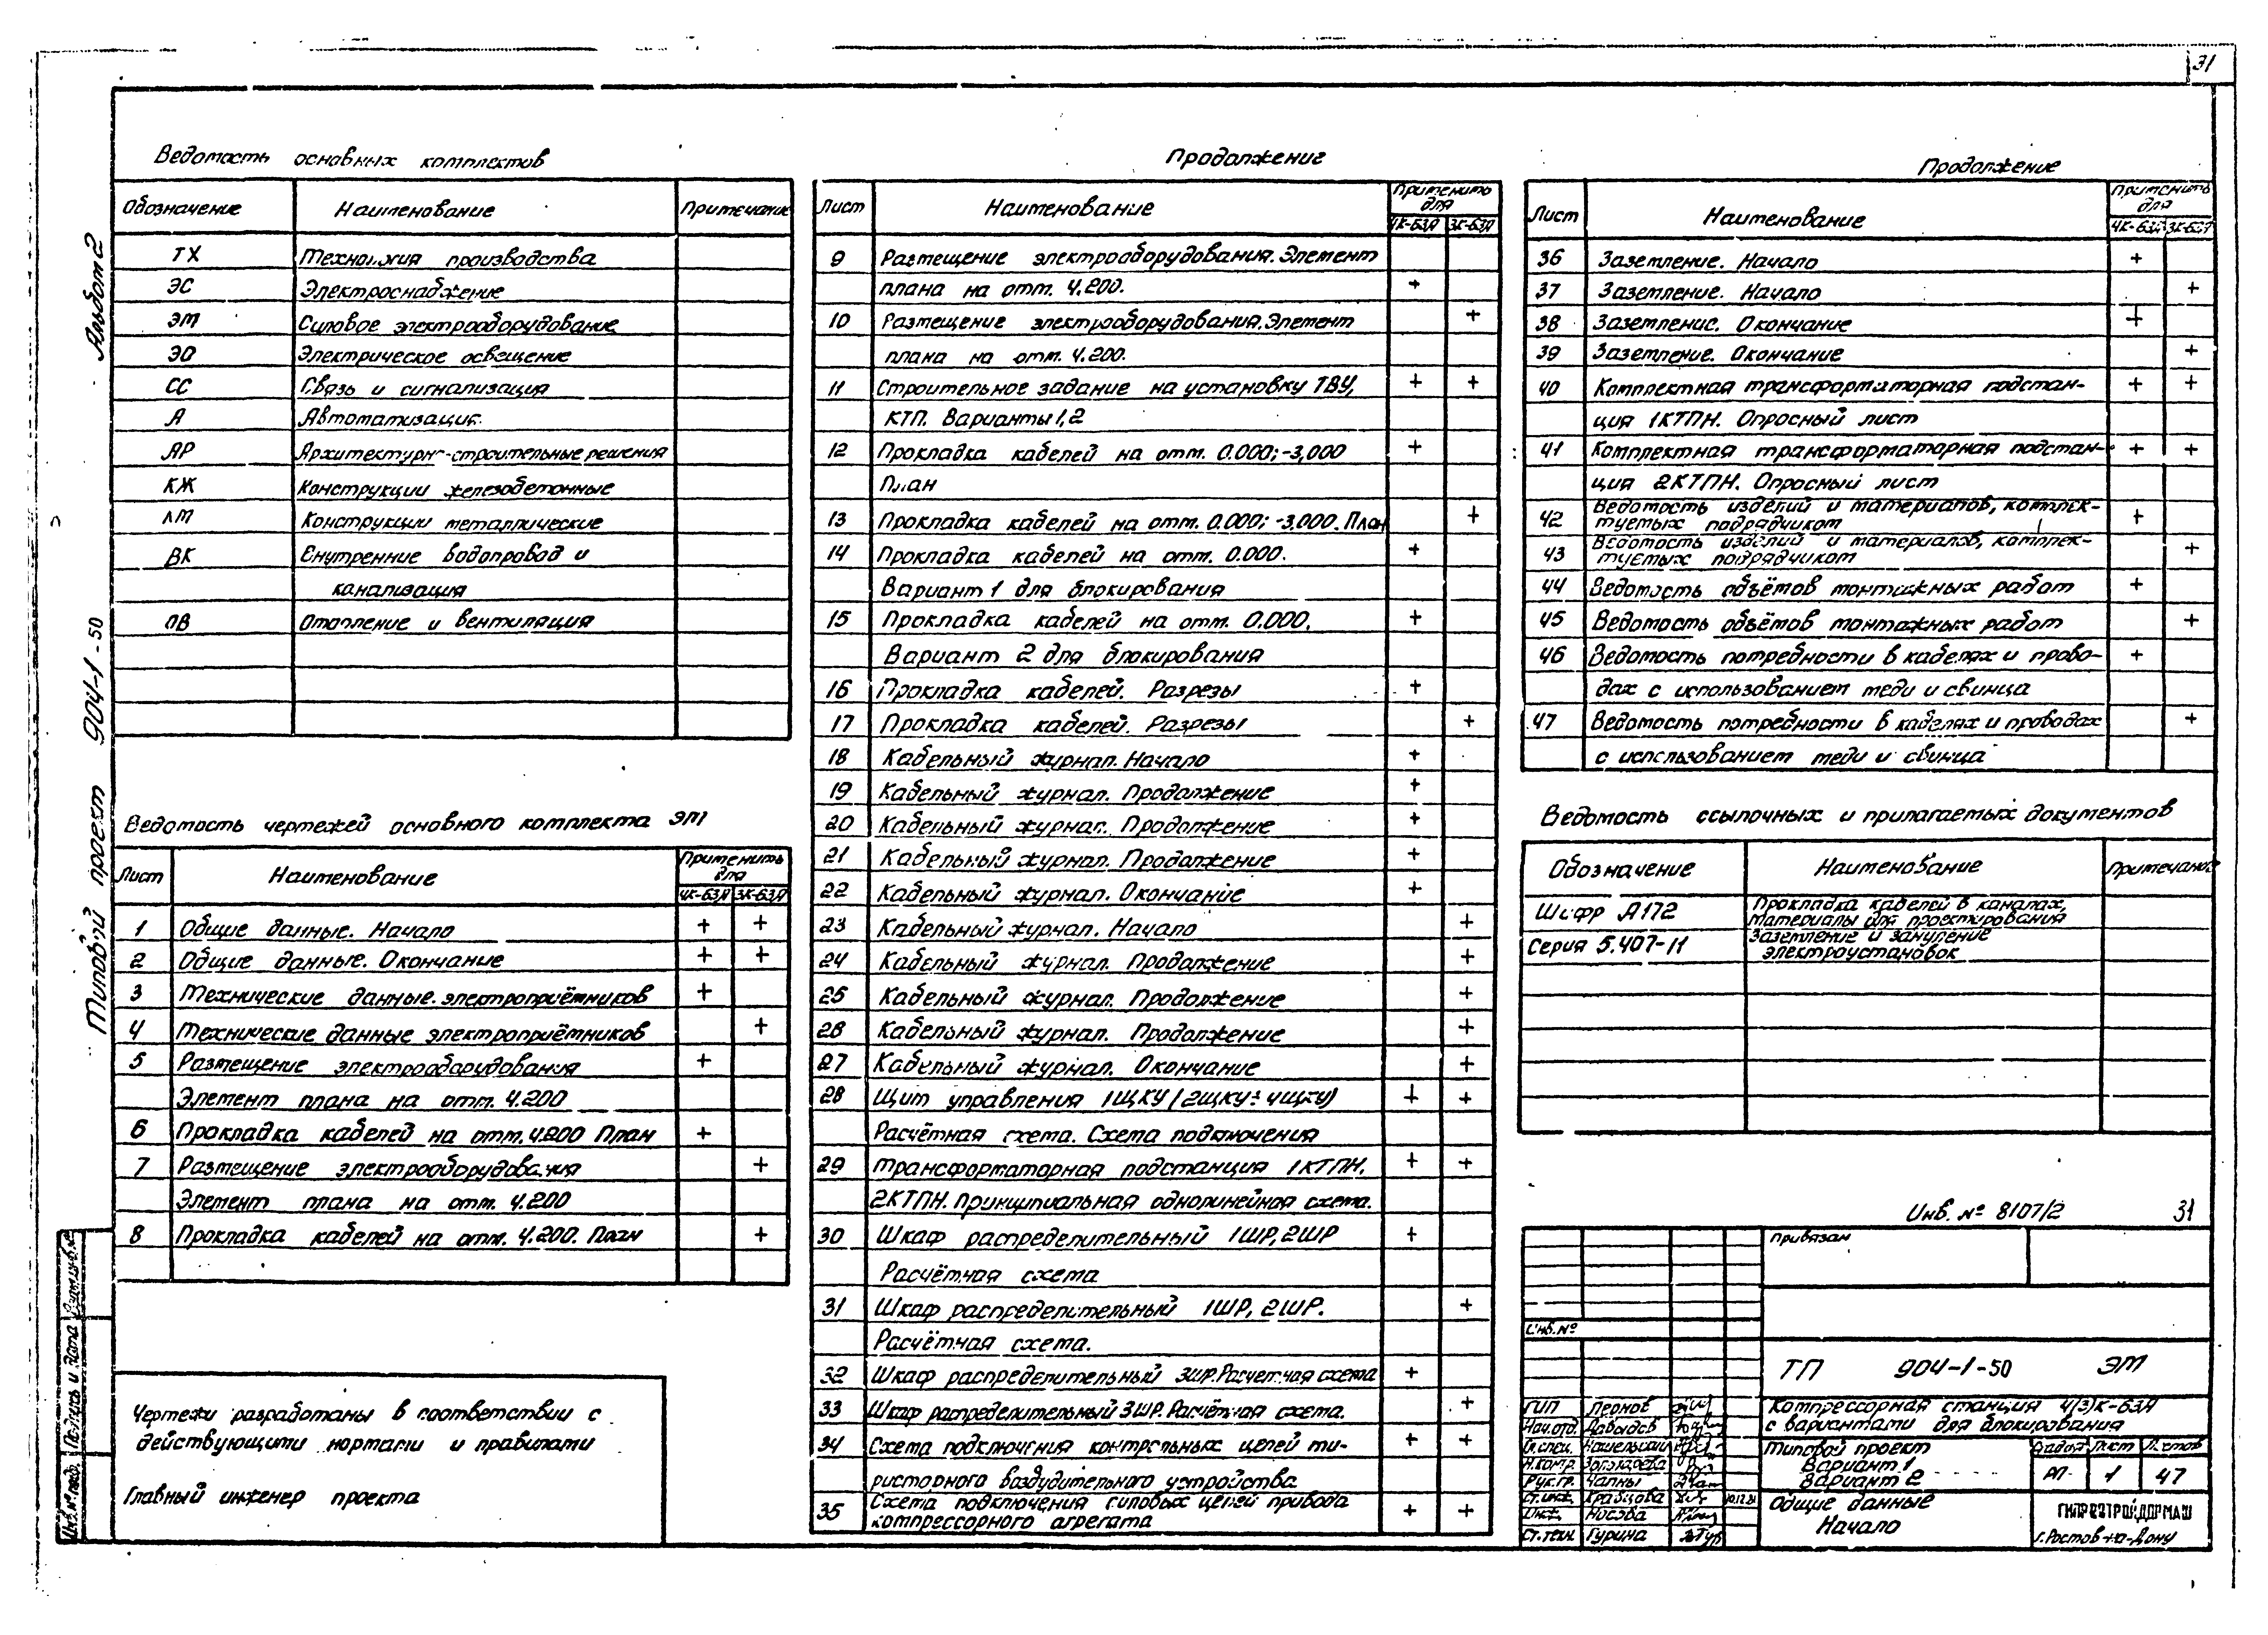 31
Альбом 2
Типовой проект 904-1-50
Ведомость основных комплектов
Обозначение Наименование Примечание
ТХ Технология производства
ЭС Электроснабжение
ЭМ Силовое электрооборудование
ЭО Электрическое освещение
СС Связь и сигнализация
А Автоматизация
АР Архитектурно-строительные решения
КЖ Конструкции железобетонные
КМ Конструкции металлические
ВК Внутренние водопровод и
канализация
ОВ Отопление и вентиляция
Ведомость чертежей основного комплекта ЭМ
Лист Наименование Применить
для
4К-63А 3К-63А
1 Общие данные. Начало + +
2 Общие данные. Окончание + +
3 Технические данные электроприёмников +
4 Технические данные электроприёмников +
5 Размещение электрооборудования +
Элемент плана на отм. 4.200
6 Прокладка кабелей на отм. 4.200 План +
7 Размещение электрооборудования +
Элемент плана на отм. 4.200
8 Прокладка кабелей на отм. 4.200. План +
Чертежи разработаны в соответствии с
действующими нормами и правилами
Главный инженер проекта
Продолжение
Лист Наименование Применить
для
4К-63А 3К-63А
9 Размещение электрооборудования. Элемент
плана на отм. 4.200. +
10 Размещение электрооборудования. Элемент +
плана на отм. 4.200.
11 Строительное задание на установку ТВУ, + +
КТП. Варианты 1,2
12 Прокладка кабелей на отм. 0.000; -3,000 +
План
13 Прокладка кабелей на отм. 0.000; -3.000. План +
14 Прокладка кабелей на отм. 0.000. +
Вариант 1 для блокирования
15 Прокладка кабелей на отм. 0.000. +
Вариант 2 для блокирования
16 Прокладка кабелей. Разрезы +
17 Прокладка кабелей. Разрезы +
18 Кабельный журнал. Начало +
19 Кабельный журнал. Продолжение +
20 Кабельный журнал. Продолжение +
21 Кабельный журнал. Продолжение +
22 Кабельный журнал. Окончание +
23 Кабельный журнал. Начало +
24 Кабельный журнал. Продолжение +
25 Кабельный журнал. Продолжение +
26 Кабельный журнал. Продолжение +
27 Кабельный журнал. Окончание +
28 Щит управления 1ЩКУ (2ЩКУ÷4ЩКУ) + +
Расчётная схема. Схема подключения
29 Трансформаторная подстанция 1КТПН, + +
2КТПН. Принципиальная однолинейная схема.
30 Шкаф распределительный 1ШР, 2ШР +
Расчётная схема
31 Шкаф распределительный 1ШР, 2ШР. +
Расчётная схема.
32 Шкаф распределительный 3ШР. Расчетная схема +
33 Шкаф распределительный 3ШР. Расчётная схема. +
34 Схема подключения контрольных цепей ти- + +
ристорного воздудительного устройства
35 Схема подключения силовых цепей привода + +
компрессорного агрегата
Продолжение
Лист Наименование Применить
для
4К-63А 3К-63А
36 Заземление. Начало +
37 Заземление. Начало +
38 Заземление. Окончание +
39 Заземление. Окончание +
40 Комплектная трансформаторная подстан- + +
ция 1КТПН. Опросный лист
41 Комплектная трансформаторная подстан- + +
ция 2КТПН. Опросный лист
42 Ведомость изделий и материалов, комплек- +
туемых подрядчиком
43 Ведомость изделий и материалов, комплек- +
туемых подрядчиком
44 Ведомость объёмов монтажных работ +
45 Ведомость объёмов монтажных работ +
46 Ведомость потребности в кабелях и прово- +
дах с использованием меди и свинца
47 Ведомость потребности в кабелях и проводах +
с использованием меди и свинца
Ведомость ссылочных и прилагаемых документов
Обозначение Наименование Примечание
Шифр А172 Прокладка кабелей в каналах,
материалы для проектирования
Серия 5.407-11 Заземление и зануление
электроустановок
Инв. № 8107/2 31
Привязан
Инв. №
ТП 904-1-50 ЭМ
Компрессорная станция 4(3)К-63А
с вариантами для блокирования
Типовой проект
Вариант 1
Вариант 2
Стадия Лист Листов
РП 1 47
Общие данные
Начало
ГИПРОСТРОЙДОРМАШ
г. Ростов-на-Дону
ГИП Лернов
Нач.отд. Давыдов
Гл.спец.
Н.контр.
Рук.гр. Чапны
Ст.инж. Кравцова
Инж. Носова
Ст.техн. Гурина
Инв. № подл. Подпись и дата Взам. инв. №